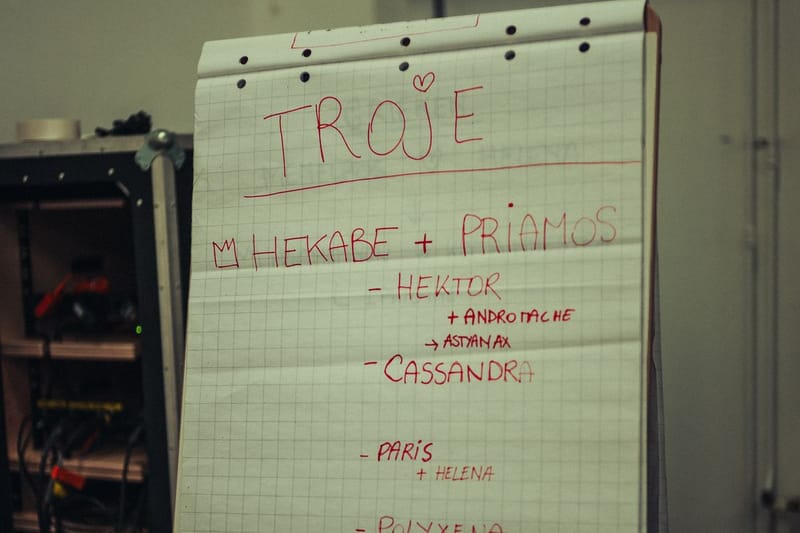 TROJE
HEKABE + PRIAMOS
- HEKTOR
+ ANDROMACHE
→ ASTYANAX
- CASSANDRA
- PARIS
+ HELENA
- POLYXENA